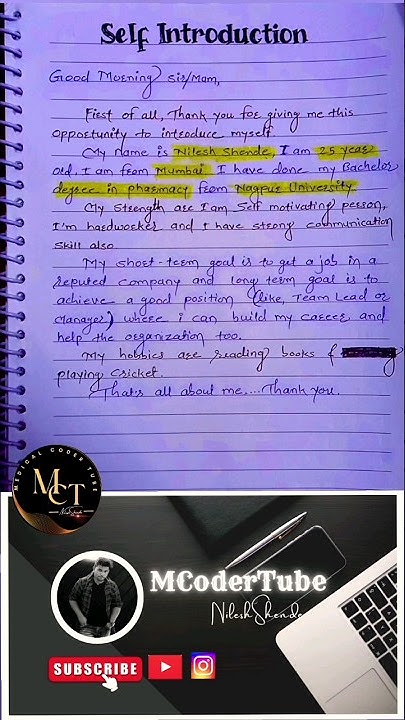 Self Introduction
Good Morning Sir/Mam,
First of all, Thank you for giving me this
opportunity to introduce myself
My name is Nilesh Shende, I am 25 year
old. I am from Mumbai I have done my Bachelor
degree in pharmacy from Nagpur University
My Strength are I am Self motivating person,
I'm hardworker and I have strong communication
Skill also
My short-term goal is to get a job in a
reputed company and long term goal is to
achieve a good position (like, Team Lead or
Manager) where i can build my career and
help the organization too.
My hobbies are reading books &
playing cricket.
That's all about me....Thank you.
MEDICAL CODER TUBE
MCT
Nilesh Shende
MCoderTube
Nilesh Shende
SUBSCRIBE